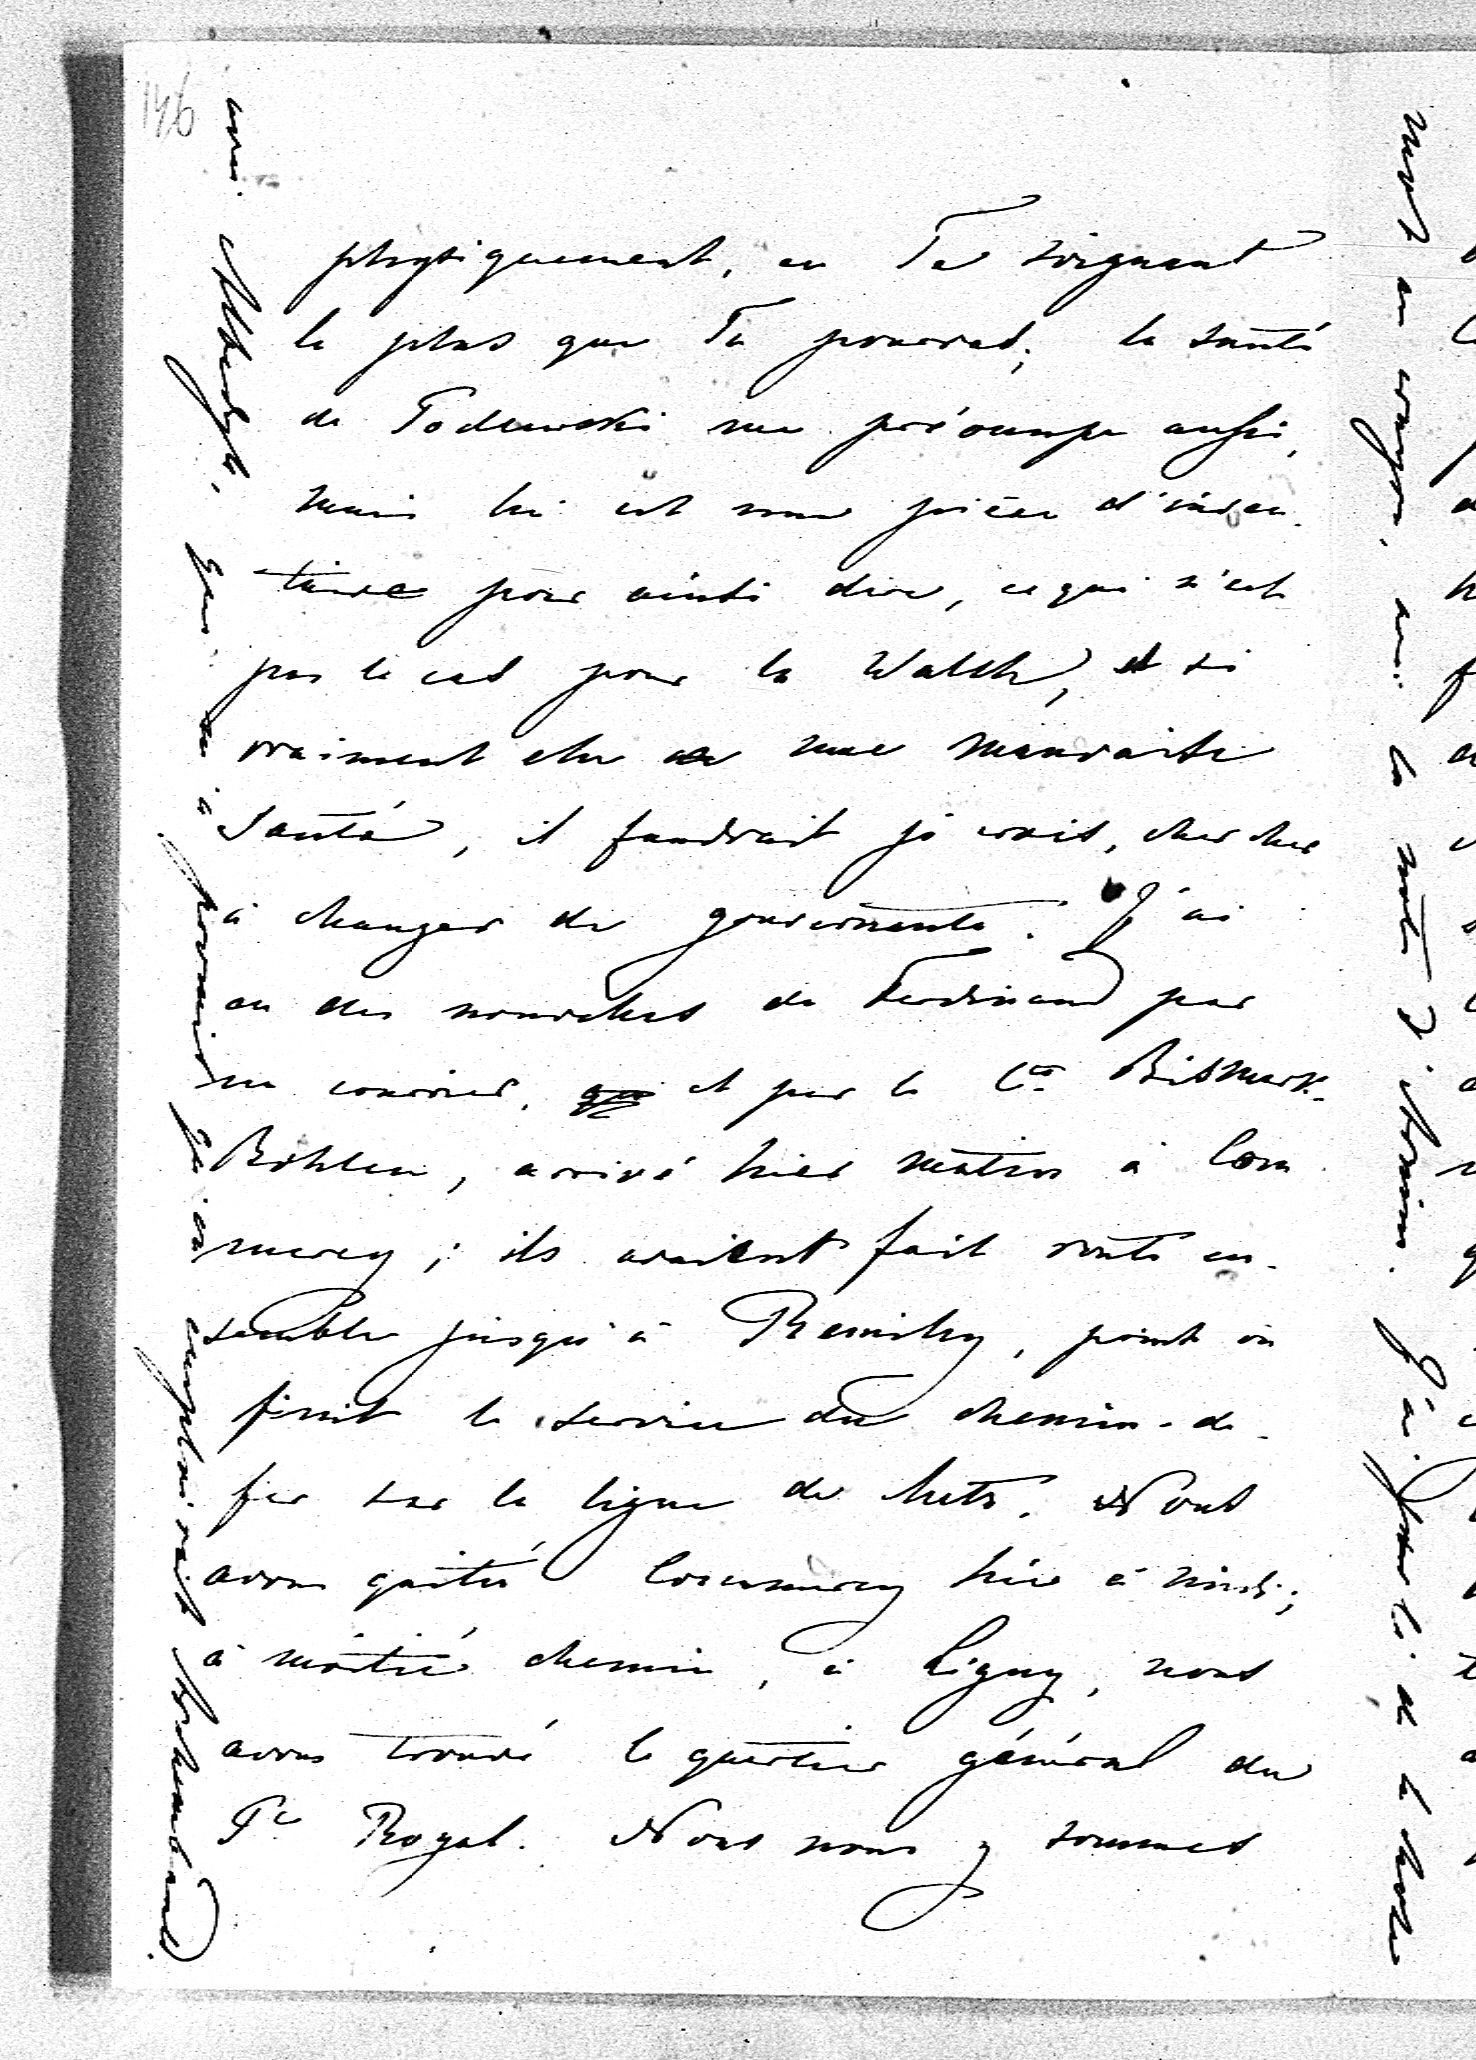 146
physiquement, en Te soignant
le plus que Tu pourras; la santé
de Podewski me préoccupe aussi,
mais lui est une pièce d'inven-
taire pour ainsi dire, ce qui n'est
pas le cas pour la Walsh, et si
vraiment elle a une mauvaise
santé, il faudrait je crois, chercher
à changer de gouvernante. J'ai
eu des nouvelles de Ferdinand par
un courrier, et par le Cte Bismark-
Bohlen, arrivé hier matin à Com
mercy; ils avaient fait route en-
semble jusqu'à Remilly, point où
finit le service du chemin-de-
fer sur la ligne de Metz. Nous
avons quitté Commercy hier à midi;
à moitié chemin, à Ligny, nous
avons trouvé le quartier général du
Pce Royal. Nous nous y sommes
qui m'a promis qu'on
mot en crayon, la note d'Arnim. J'ai parlé de la chose